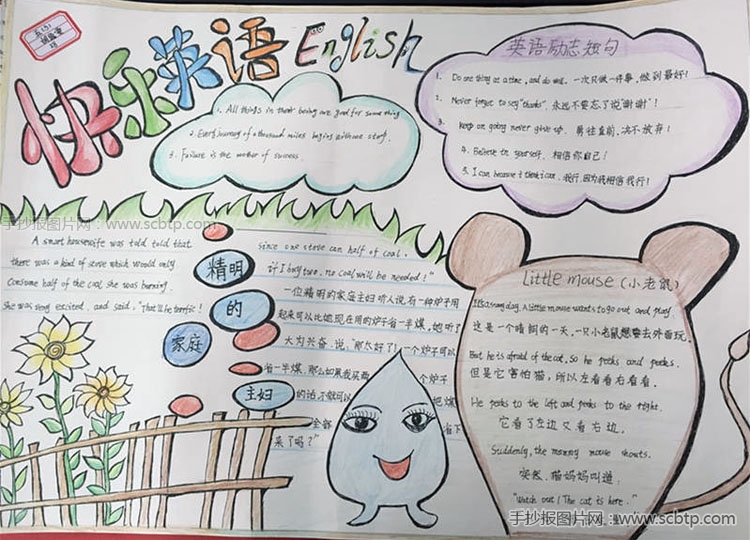 快乐英语 English
1. All things in their being are good for something
2. Every journey of a thousand miles begins with one step.
3. Failure is the mother of success
英语励志短句
1. Do one thing at a time, and do well. 一次只做一件事，做到最好！
2. Never forget to say "thanks". 永远不要忘了说"谢谢"！
3. Keep on going never give up. 勇往直前，决不放弃！
4. Believe in yourself. 相信你自己！
5. I can because I think I can. 我行，因为我相信我行！
手抄报图片网：www.scbtp.com
手抄报图片网：www.scbtp.com
A smart housewife was told told that
there was a kind of stove which would only
consume half of the coal she was burning.
She was very excited, and said, "That'll be terrific!
精明
的
家庭
主妇
since one stove can half of coal,
if I buy two, no coal will be needed!"
一位精明的家庭主妇听人说有一种炉子用
起来可以比她现在用的炉子省一半煤，她听了
大为兴奋，说："那太好了！一个炉子可以
省一半煤，那么如果我买两个炉子
的话，不就可以把煤
全部省下
来了吗？"
Little mouse (小老鼠)
It's a sunny day. A little mouse wants to go out and play.
这是一个晴朗的一天，一只小老鼠想要去外面玩。
But he is afraid of the cat. So he peeks and peeks.
但是它害怕猫，所以左看看右看看。
He peeks to the left and peeks to the right.
它看了左边又看右边。
Suddenly, the mommy mouse shouts.
突然，猫妈妈叫道：
"Watch out! The cat is here."
手抄报图片网：www.scbtp.com